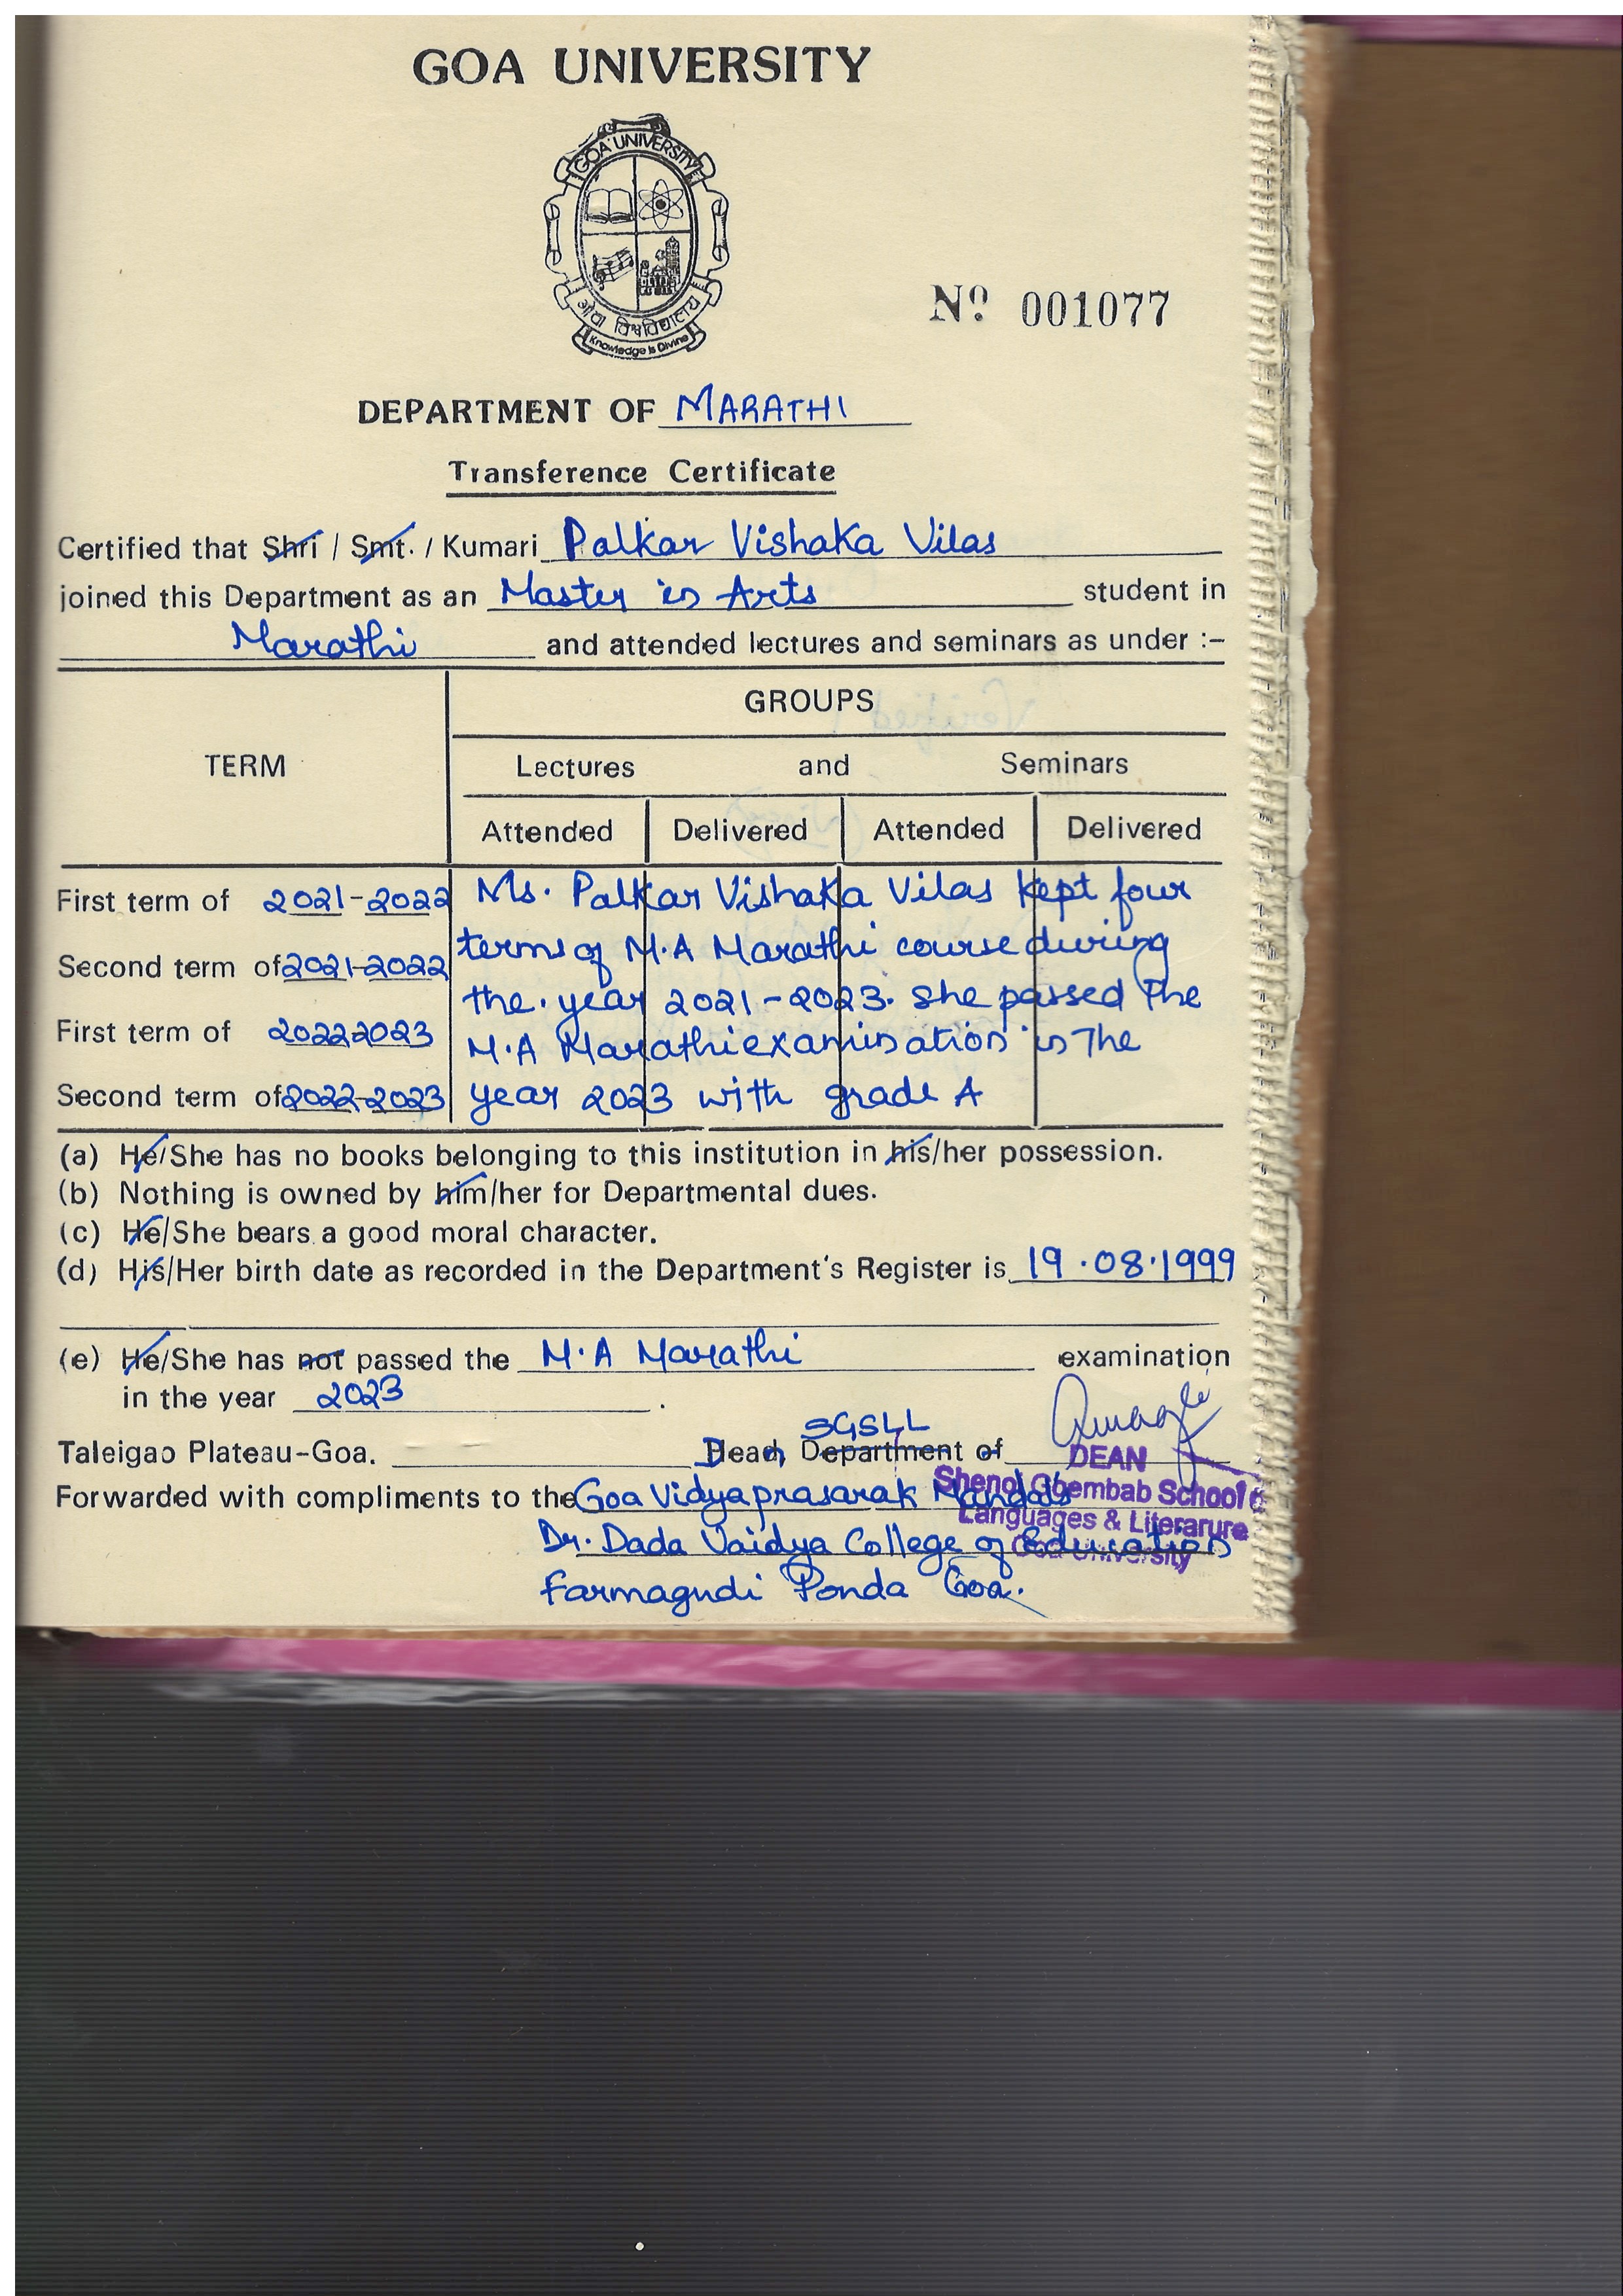 GOA UNIVERSITY
GOA UNIVERSITY
गोंवा विश्वविद्यालय
Knowledge is Divine
Nº 001077
DEPARTMENT OF MARATHI
Transference Certificate
Certified that Shri / Smt. / Kumari Palkar Vishaka Vilas
joined this Department as an Master in Arts student in
Marathi and attended lectures and seminars as under :-
GROUPS
TERM Lectures and Seminars
Attended Delivered Attended Delivered
First term of 2021-2022 Ms. Palkar Vishaka Vilas kept four
Second term of 2021-2022 terms of M.A Marathi course during
the year 2021-2023. She passed The
First term of 2022-2023 M.A Marathi examination in The
Second term of 2022-2023 year 2023 with grade A
(a) He/She has no books belonging to this institution in his/her possession.
(b) Nothing is owned by him/her for Departmental dues.
(c) He/She bears a good moral character.
(d) His/Her birth date as recorded in the Department's Register is 19.08.1999
(e) He/She has not passed the M.A Marathi examination
in the year 2023.
SGSLL
Taleigao Plateau-Goa. Dean, Department of
DEAN
Shenoi Goembab School of
Languages & Literarure
Goa University
Forwarded with compliments to the Goa Vidyaprasarak Mandal's
Dr. Dada Vaidya College of Education
Farmagudi Ponda Goa.